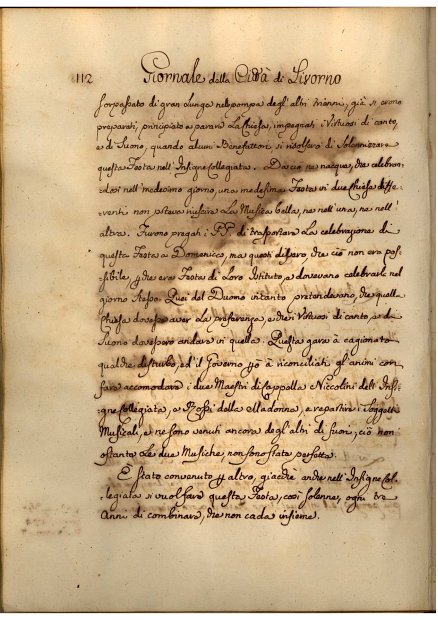 112 Giornale della Città di Livorno
sorpassato di gran lunga nelle pompa degl'altri Inanni, già si erono
preparati, principiato a parare la Chiesa, impegnati i Virtuosi di canto,
e di Suono, quando alcuni Benefattori si risolsero di Solennizzare
questa Festa nell'Insigne Collegiata. Da ciò ne nacque, che celebran-
dosi nell'medesimo giorno, una medesima Festa in due Chiese diffe-
renti non poteva riuscire la Musica bella, ne nell'una, ne nell'
altra. Furono pregati i PP. di trasportare la celebrazione di
questa Festa a Domenica, ma questi dissero, che ciò non era pos-
sibile, p che era Festa di Loro Istituto, e dovevano celebrarla nel
giorno stesso. Quei del Duomo intanto pretendevano, che quella
Chiesa dovesse aver la preferenza, e che i Virtuosi di canto, e di
Suono dovessero andare in quella. Questa gara à cagionato
qualche disturbo, ed il Governo à riconciliati gl'animi con
fare accomodare i due Maestri di Cappella Niccolini dell'Insi-
gne Collegiata, e Rossi della Madonna, e repartire i Soggetti
Musicali, e ne sono venuti ancora degl'altri di fuori, ciò non
ostante le due Musiche non sono state perfette.
È stato convenuto p altro, giacchè anche nell'Insigne Col-
legiata si vuol fare questa Festa, così solenne, ogni tre
Anni di combinare, che non cada insieme.